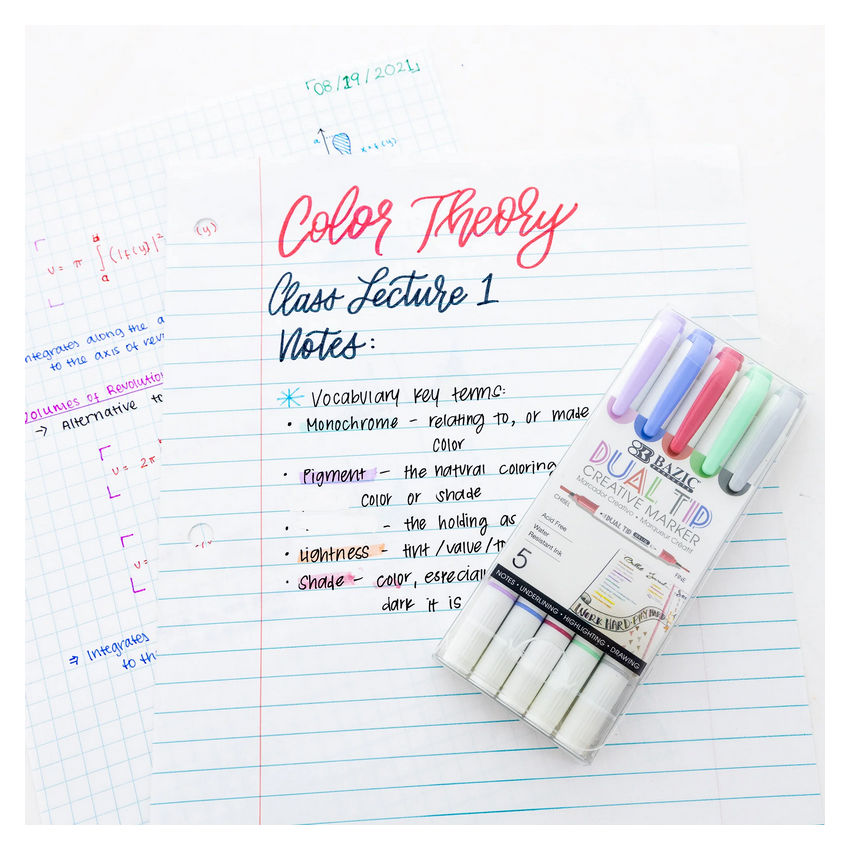 「08/19/2021」
a
x=f(y)
(y)
v = π ∫ (|f(y)|²
a
integrates along the a
to the axis of rev
Volumes of Revolution
→ Alternative to
v = 2π
v=
⇒ Integrates
to th
Color Theory
Class Lecture 1
Notes:
Vocabulary Key terms:
• Monochrome - relating to, or made
color
• Pigment - the natural coloring
color or shade
• - the holding as
• Lightness - tint/value/to
• Shade - color, especiall
dark it is
BAZIC
DUAL TIP
CREATIVE MARKER
Marcador Creativo • Marqueur Créatif
CHISEL
DUAL TIP
FINE
Acid Free
Water
Resistant Ink
5
WORK HARD PLAY HARD
NOTES • UNDERLINING • HIGHLIGHTING • DRAWING